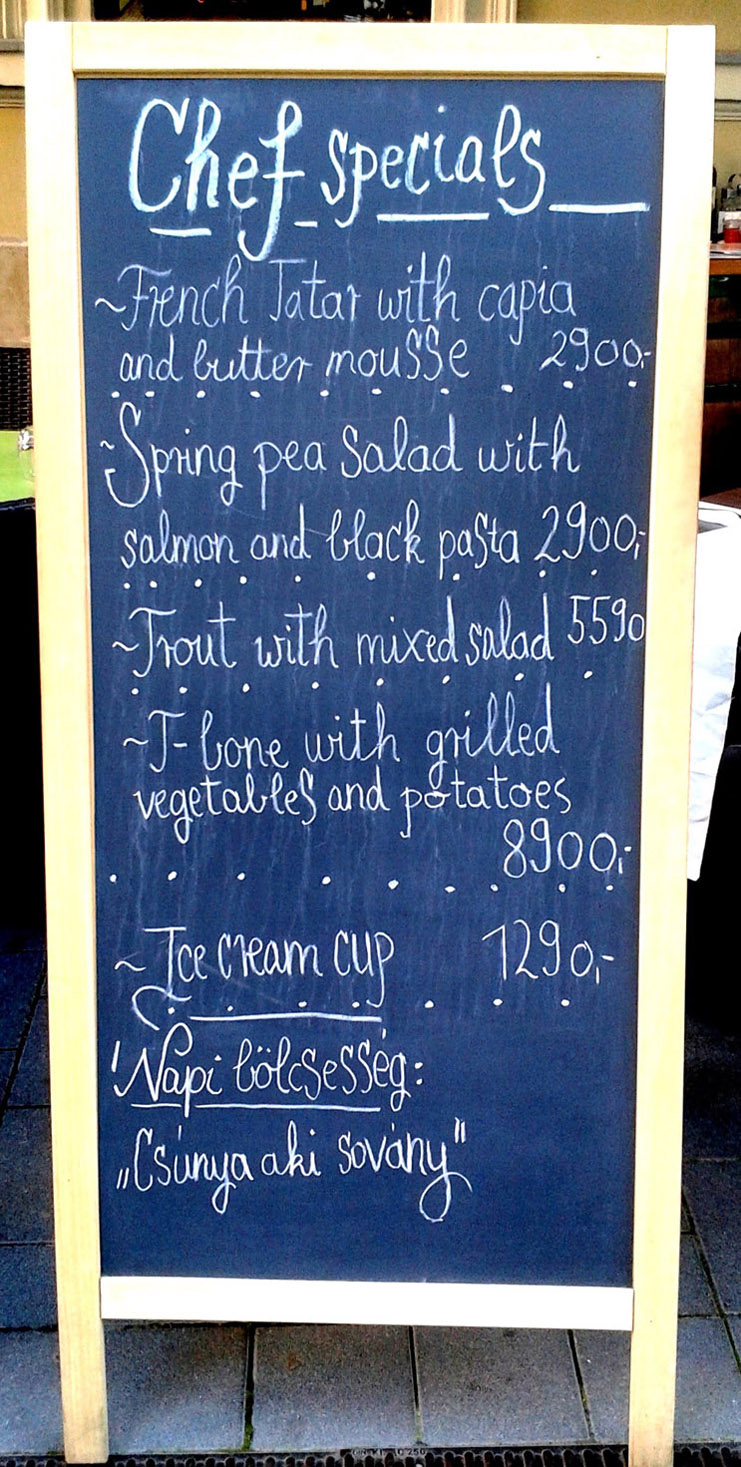 Chef specials
~French Tatar with capia
and butter mousse 2900,-
~Spring pea Salad with
salmon and black pasta 2900,-
~Trout with mixed salad 5590
~T-bone with grilled
vegetables and potatoes
8900,-
~Ice cream cup 1290,-
'Napi bölcsesség:
„Csúnya aki sovány"